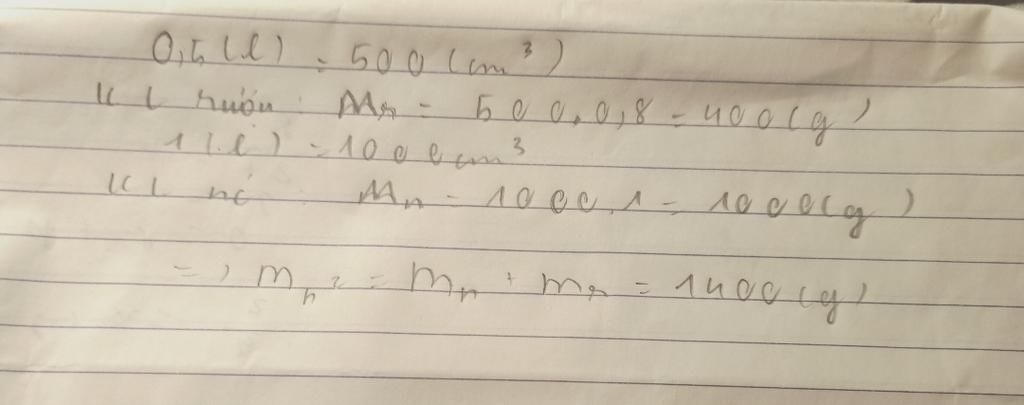 0,5 (l) = 500 (cm³)
KL rượu: Mr = 500.0,8 = 400 (g)
1 (l) = 1000 cm³
KL nc Mn = 1000.1 = 1000 (g)
=> mh² = mn + mr = 1400 (g)